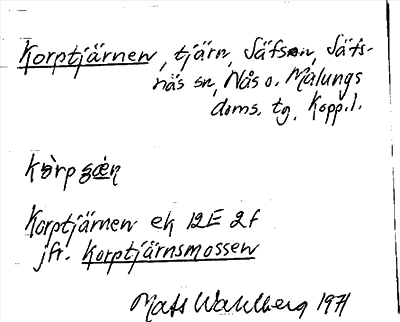 Korptjärnen, tjärn, Säfsen, Säfs-
näs sn, Nås o. Malungs
doms. tg, Kopp. l.
Korptjärnen ek 12E 2f
jfr. Korptjärnsmossen
Mats Wahlberg 1971